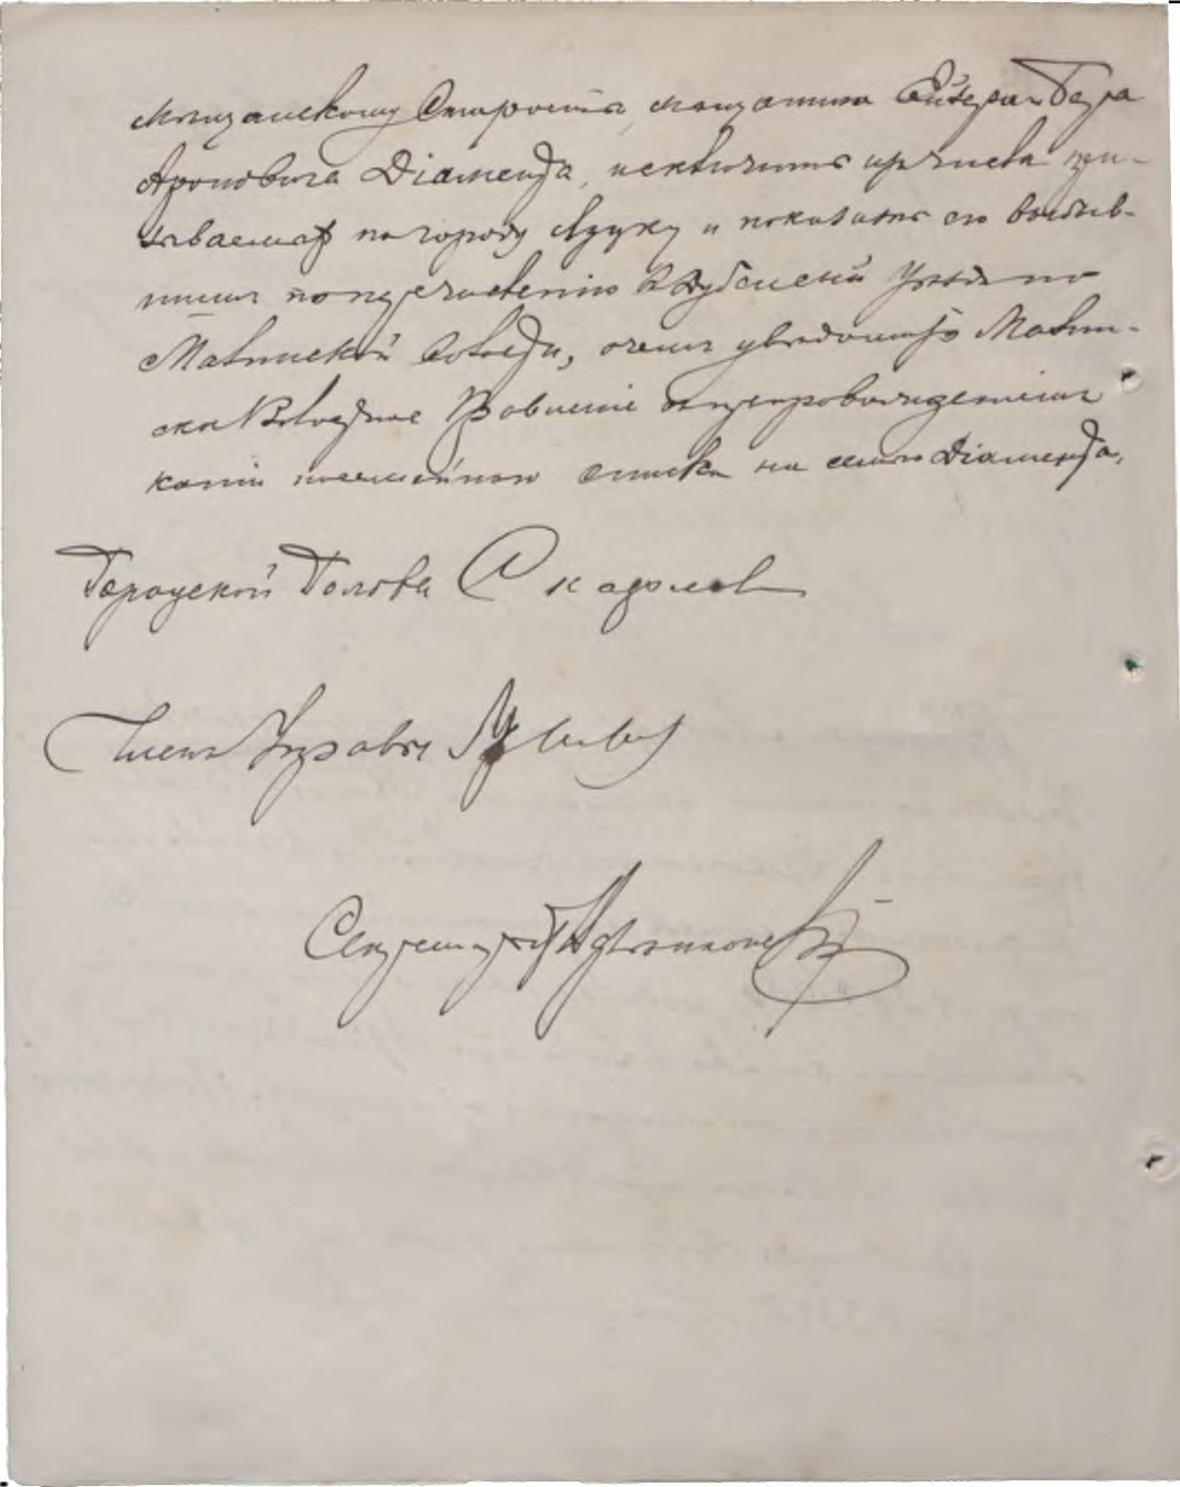 мѣщанскому Старостѣ, мѣщанина Бера
Ароновича Діаменда, исключить изъ числа при-
зываемыхъ по городу Луцку и показать его выбыв-
шимъ по перечисленію въ Дубенскій уѣздъ по
Малинской Волости, о чемъ увѣдомить Малин-
ское Волостное Правленіе съ препровожденіемъ
копіи посемейнаго списка на семью Діаменда.
Городской Голова
Членъ Управы
Секретарь